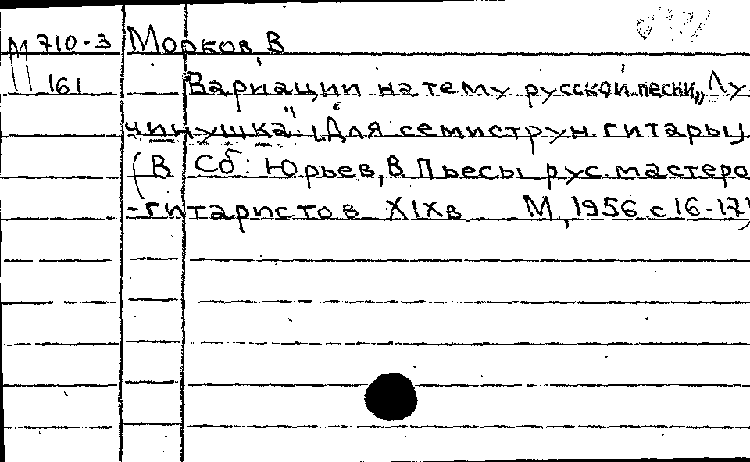 М 710-3 Морков, В
161 Вариации на тему русской песни „Лу-
чинушка" [Для семиструн. гитары]
(В сб: Юрьев, В Пьесы рус. мастеро
-гитаристов XIX в М, 1956 с 16-17)